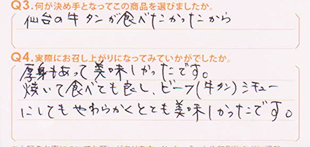 Q3.何が決め手となってこの商品を選びましたか。
仙台の牛タンが食べたかったから
Q4.実際にお召し上がりになってみていかがでしたか。
厚身もあって美味しかったです。
焼いて食べても良し、ビーフ(牛タン)シチュー
にしてもやわらかくとても美味しかったです。